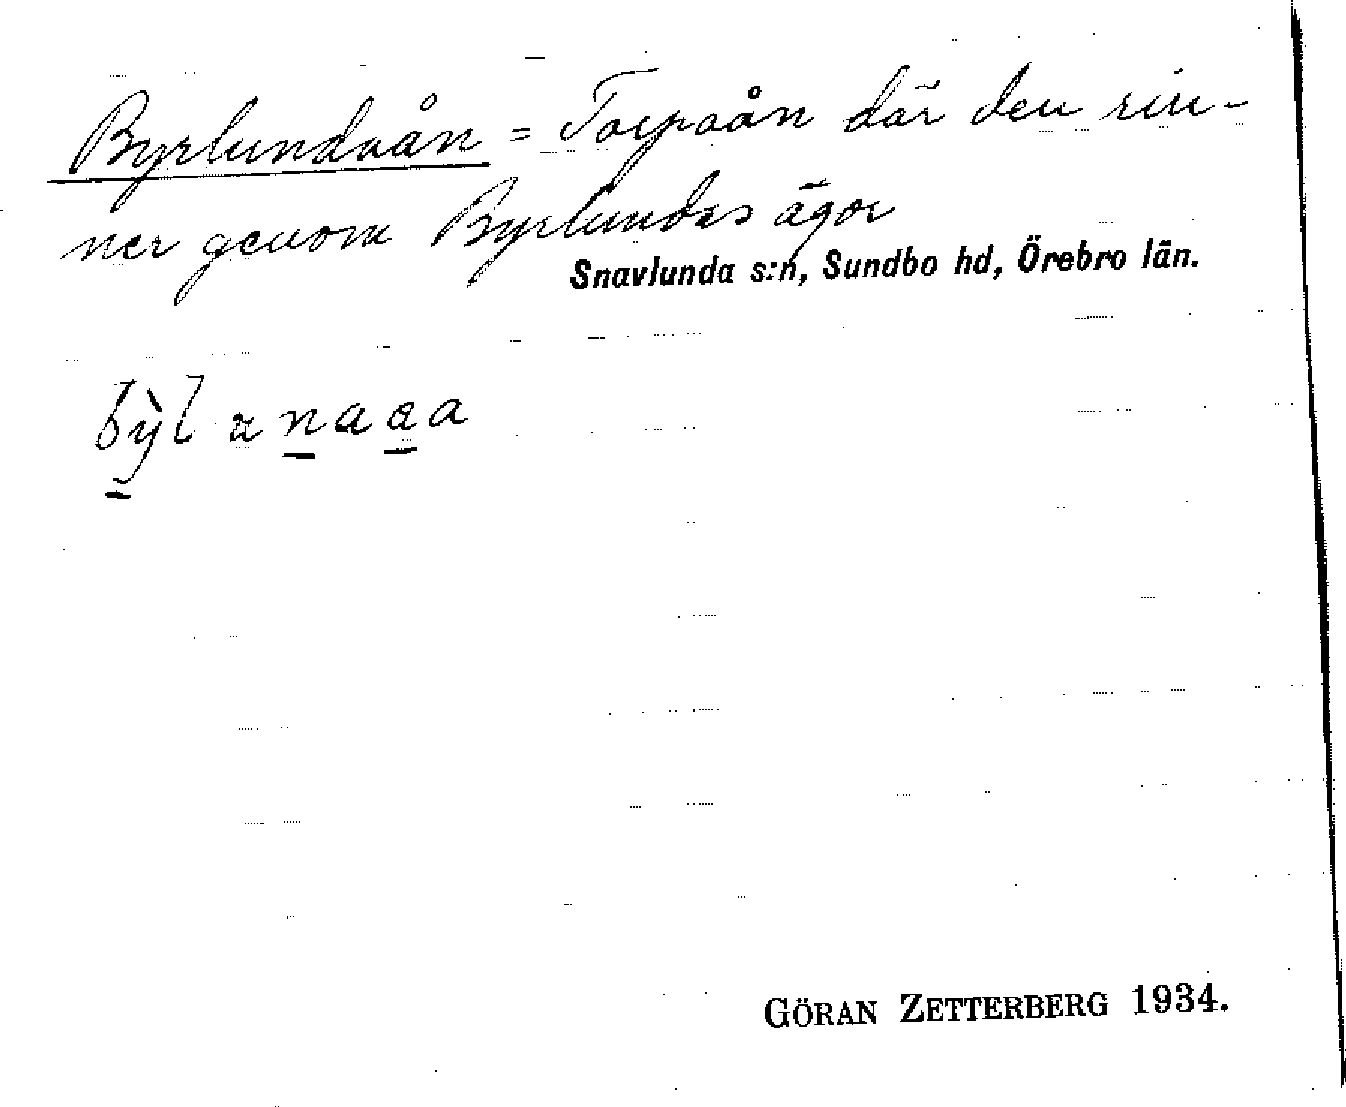 Byrlundaån = Torpaån där den rin-
ner genom Byrlundas ägor
Snavlunda s:n, Sundbo hd, Örebro län.
GÖRAN ZETTERBERG 1934.